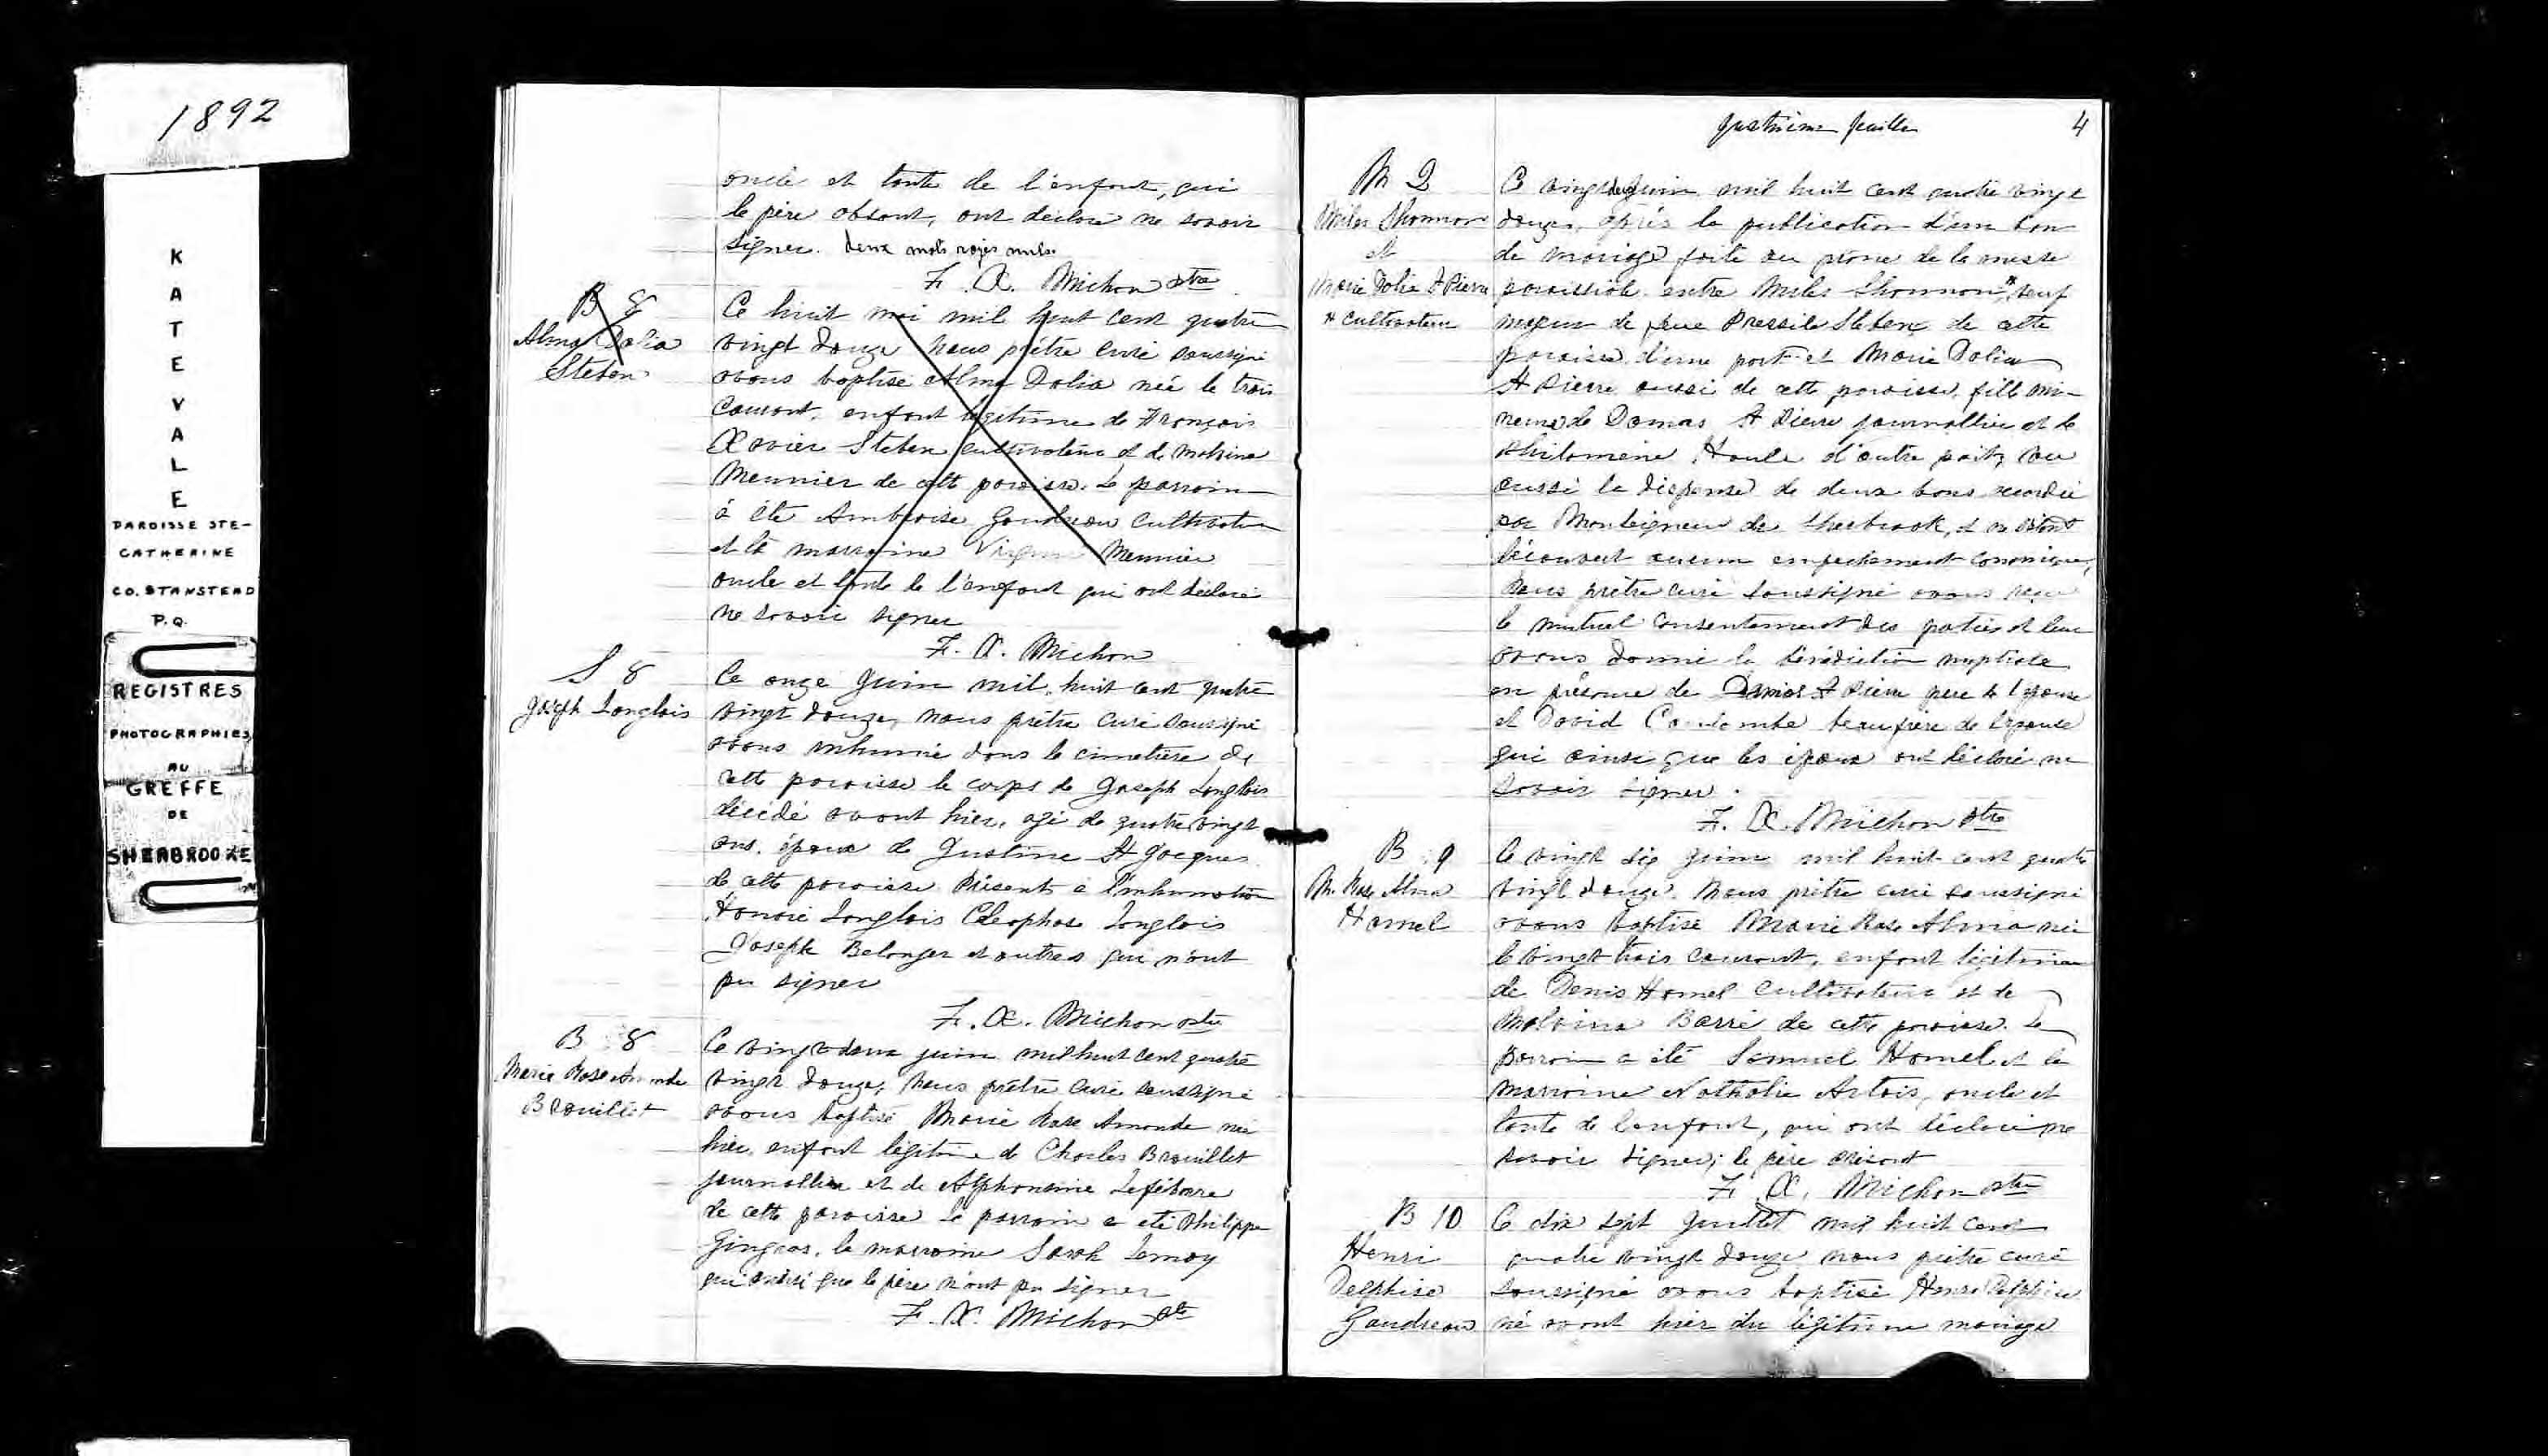 1892
KATEVALE
PAROISSE STE-
CATHERINE
CO. STANSTEAD
P.Q.
REGISTRES
PHOTOGRAPHIES
AU
GREFFE
DE
SHERBROOKE
oncle et tante de l'enfant, qui
le père absent, ont déclaré ne savoir
signer. deux mots rayés nuls.
F. X. Michon ptre
B 8
Alma Dolia
Steben
Ce huit mai mil huit cent quatre
vingt douze nous prêtre curé soussigné
avons baptisé Alma Dolia née le trois
courant, enfant légitime de François
Xavier Steben cultivateur et de Malvina
Meunier de cette paroisse. Le parrain
à été Ambroise Gaudreau cultivateur
et la marraine Meunier
oncle et tante de l'enfant qui ont déclaré
ne savoir signer
F. X. Michon
S 8
Joseph Langlois
Ce onze Juin mil huit cent quatre
vingt douze, nous prêtre curé soussigné
avons inhumé dans le cimetière de
cette paroisse le corps de Joseph Langlois
décédé avant hier, agé de quatre vingt
ans, époux de Justine St Jacques
de cette paroisse. Présents à l'inhumation
Honoré Langlois Cléophas Langlois
Joseph Belanger et autres qui n'ont
pu signer
F. X. Michon ptre
B 8
Marie Rose Amande
Brouillet
Ce vingt deux juin mil huit cent quatre
vingt douze, nous prêtre curé soussigné
avons baptisé Marie Rose Amande née
hier, enfant légitime de Charles Brouillet
journallier et de Alphonsine Lefebvre
de cette paroisse Le parrain a été Philippe
Gingras, la marraine Sarah Lemay
qui ainsi que le père n'ont pu signer
F. X. Michon ptre
quatrième feuille 4
M 2
Shonnon
et
Marie Dolia St Pierre
* cultivateur
Ce vingt juin mil huit cent quatre vingt
douze, après la publication d'un ban
de mariage faite au prône de la messe
paroissiale entre Shonnon * veuf
majeur de feue Steben de cette
paroisse d'une part et Marie Dolia
St Pierre aussi de cette paroisse, fille mi-
neure de Damas St Pierre journallier et de
Philomène Houle d'autre part, vu
aussi la dispense de deux bans accordée
par Monseigneur de Sherbrook, et ne s'étant
découvert aucun empêchement canonique,
Nous prêtre curé soussigné avons reçu
le mutuel consentement des parties et leur
avons donné la bénédiction nuptiale
en présence de Damas St Pierre père de l'épouse
et David Coulombe beaufrère de l'épouse
qui ainsi que les époux ont déclaré ne
savoir signer.
F. X. Michon Ptre
B 9
M. Rose Alma
Hamel
Ce vingt six juin mil huit cent quatre
vingt douze. Nous prêtre curé soussigné
avons baptisé Marie Rose Alma née
le vingt trois courant, enfant légitime
de Denis Hamel cultivateur et de
Malvina Barré de cette paroisse. Le
parrain a été Samuel Hamel et la
marraine Nathalie Artois, oncle et
tante de l'enfant, qui ont déclaré ne
savoir signer; le père absent
F. X. Michon ptre
B 10
Henri
Delphise
Gaudreau
Ce dix sept Juillet mil huit cent
quatre vingt douze nous prêtre curé
soussigné avons baptisé Henri Delphise
né avant hier du légitime mariage